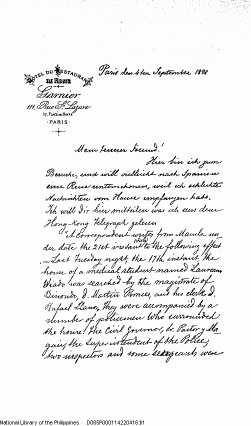 HOTEL DU RESTAURANT
Garnier
111, Rue St. Lazare
PARIS
Paris den 4ten September 1891
Mein teurer Freund!
Hier bin ich zum
Besuche, und will vielleicht nach Spanien
eine Reise unternehmen, weil ich schlechte
Nachrichten vom Hause empfangen habe.
Ich will dir hier mitteilen was ich aus dem
Hong-Kong Telegraph gelesen
"A Correspondent writes from Manila un-
der date the 21st instant to the following effect
Last Tuesday night the 17th instant, the
house of a medical student named Laureano
Viado was searched by the magistrate of
Binondo, d. Martin Piracés, and his clerk d.
Rafael Llanos, they were accompanied by a
number of policemen who surrounded
the house. The Civil Governor, Sr. Pastor y Ma-
gán, the Superintendent of the Police,
two inspectors and some sergeants were
National Library of the Philippines